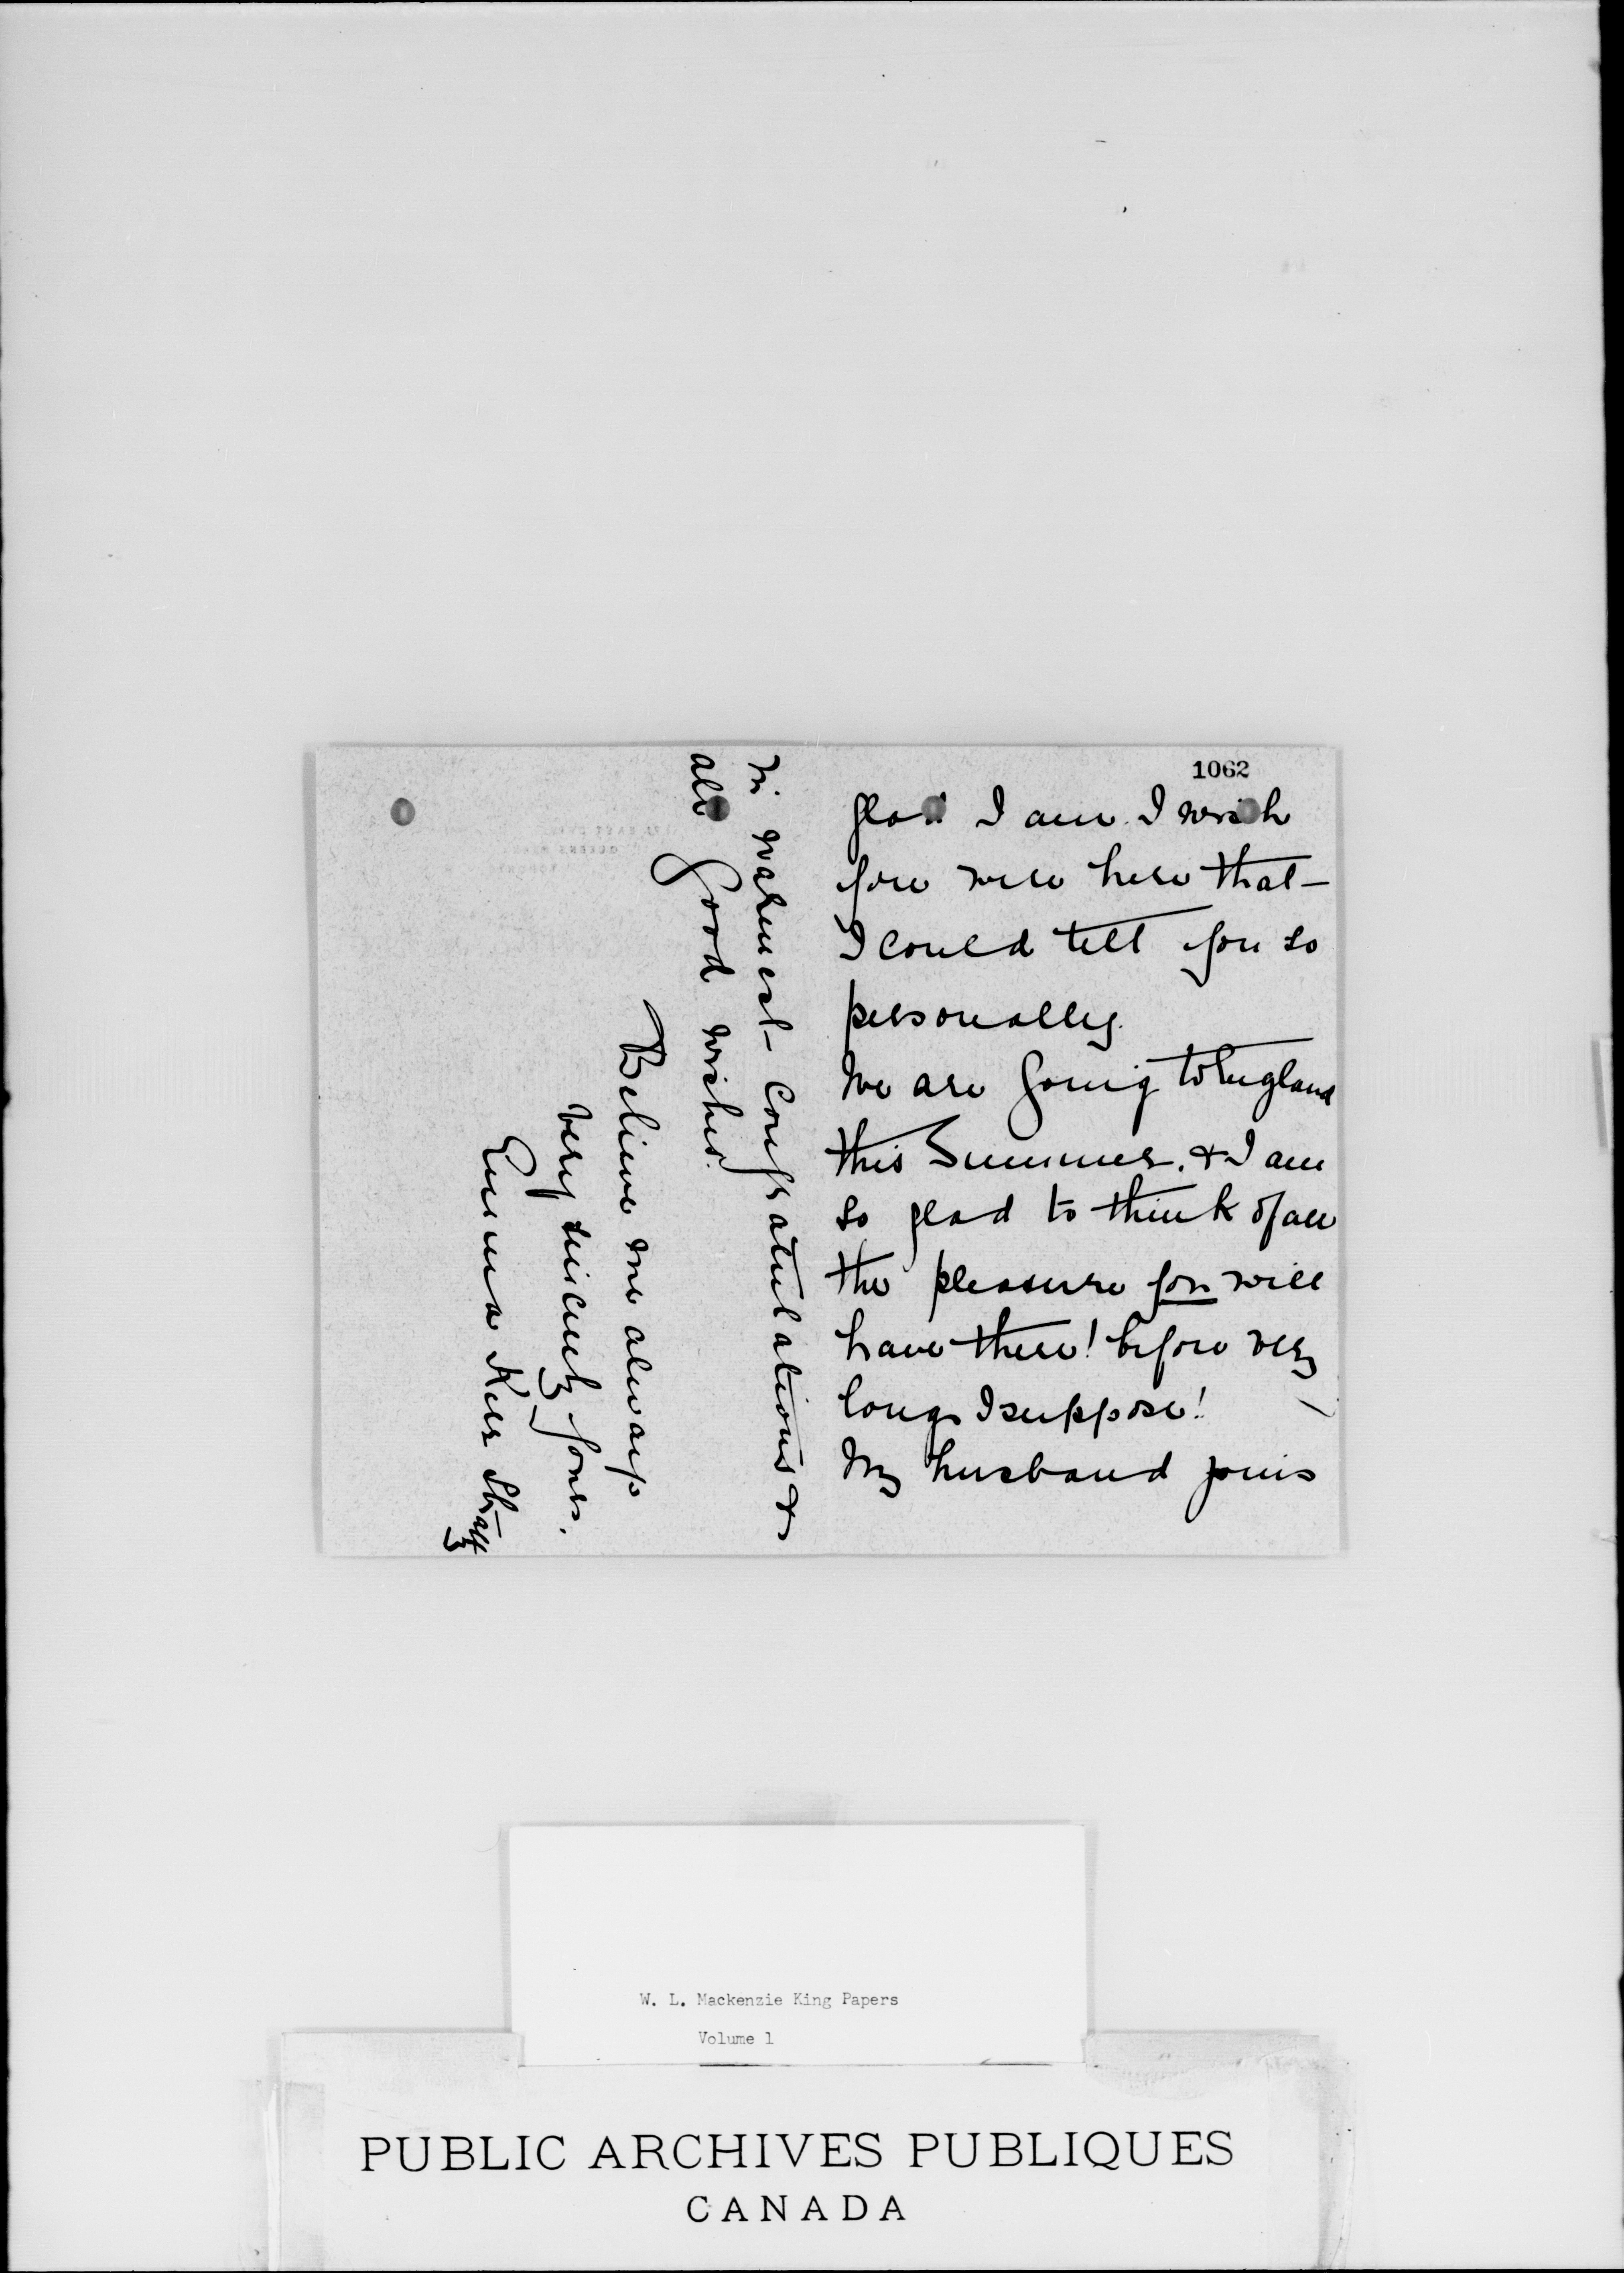 1062
glad I am. I wish
you were here that
I could tell you so
personally.
We are going to England
this Summer. & I am
so glad to think of all
the pleasure you will
have there! before very
long I suppose!
My husband joins
in warmest congratulations &
all good wishes.
Believe me always
very sincerely yours.
Emma Kerr Strathy
W. L. Mackenzie King Papers
Volume 1
PUBLIC ARCHIVES PUBLIQUES
CANADA